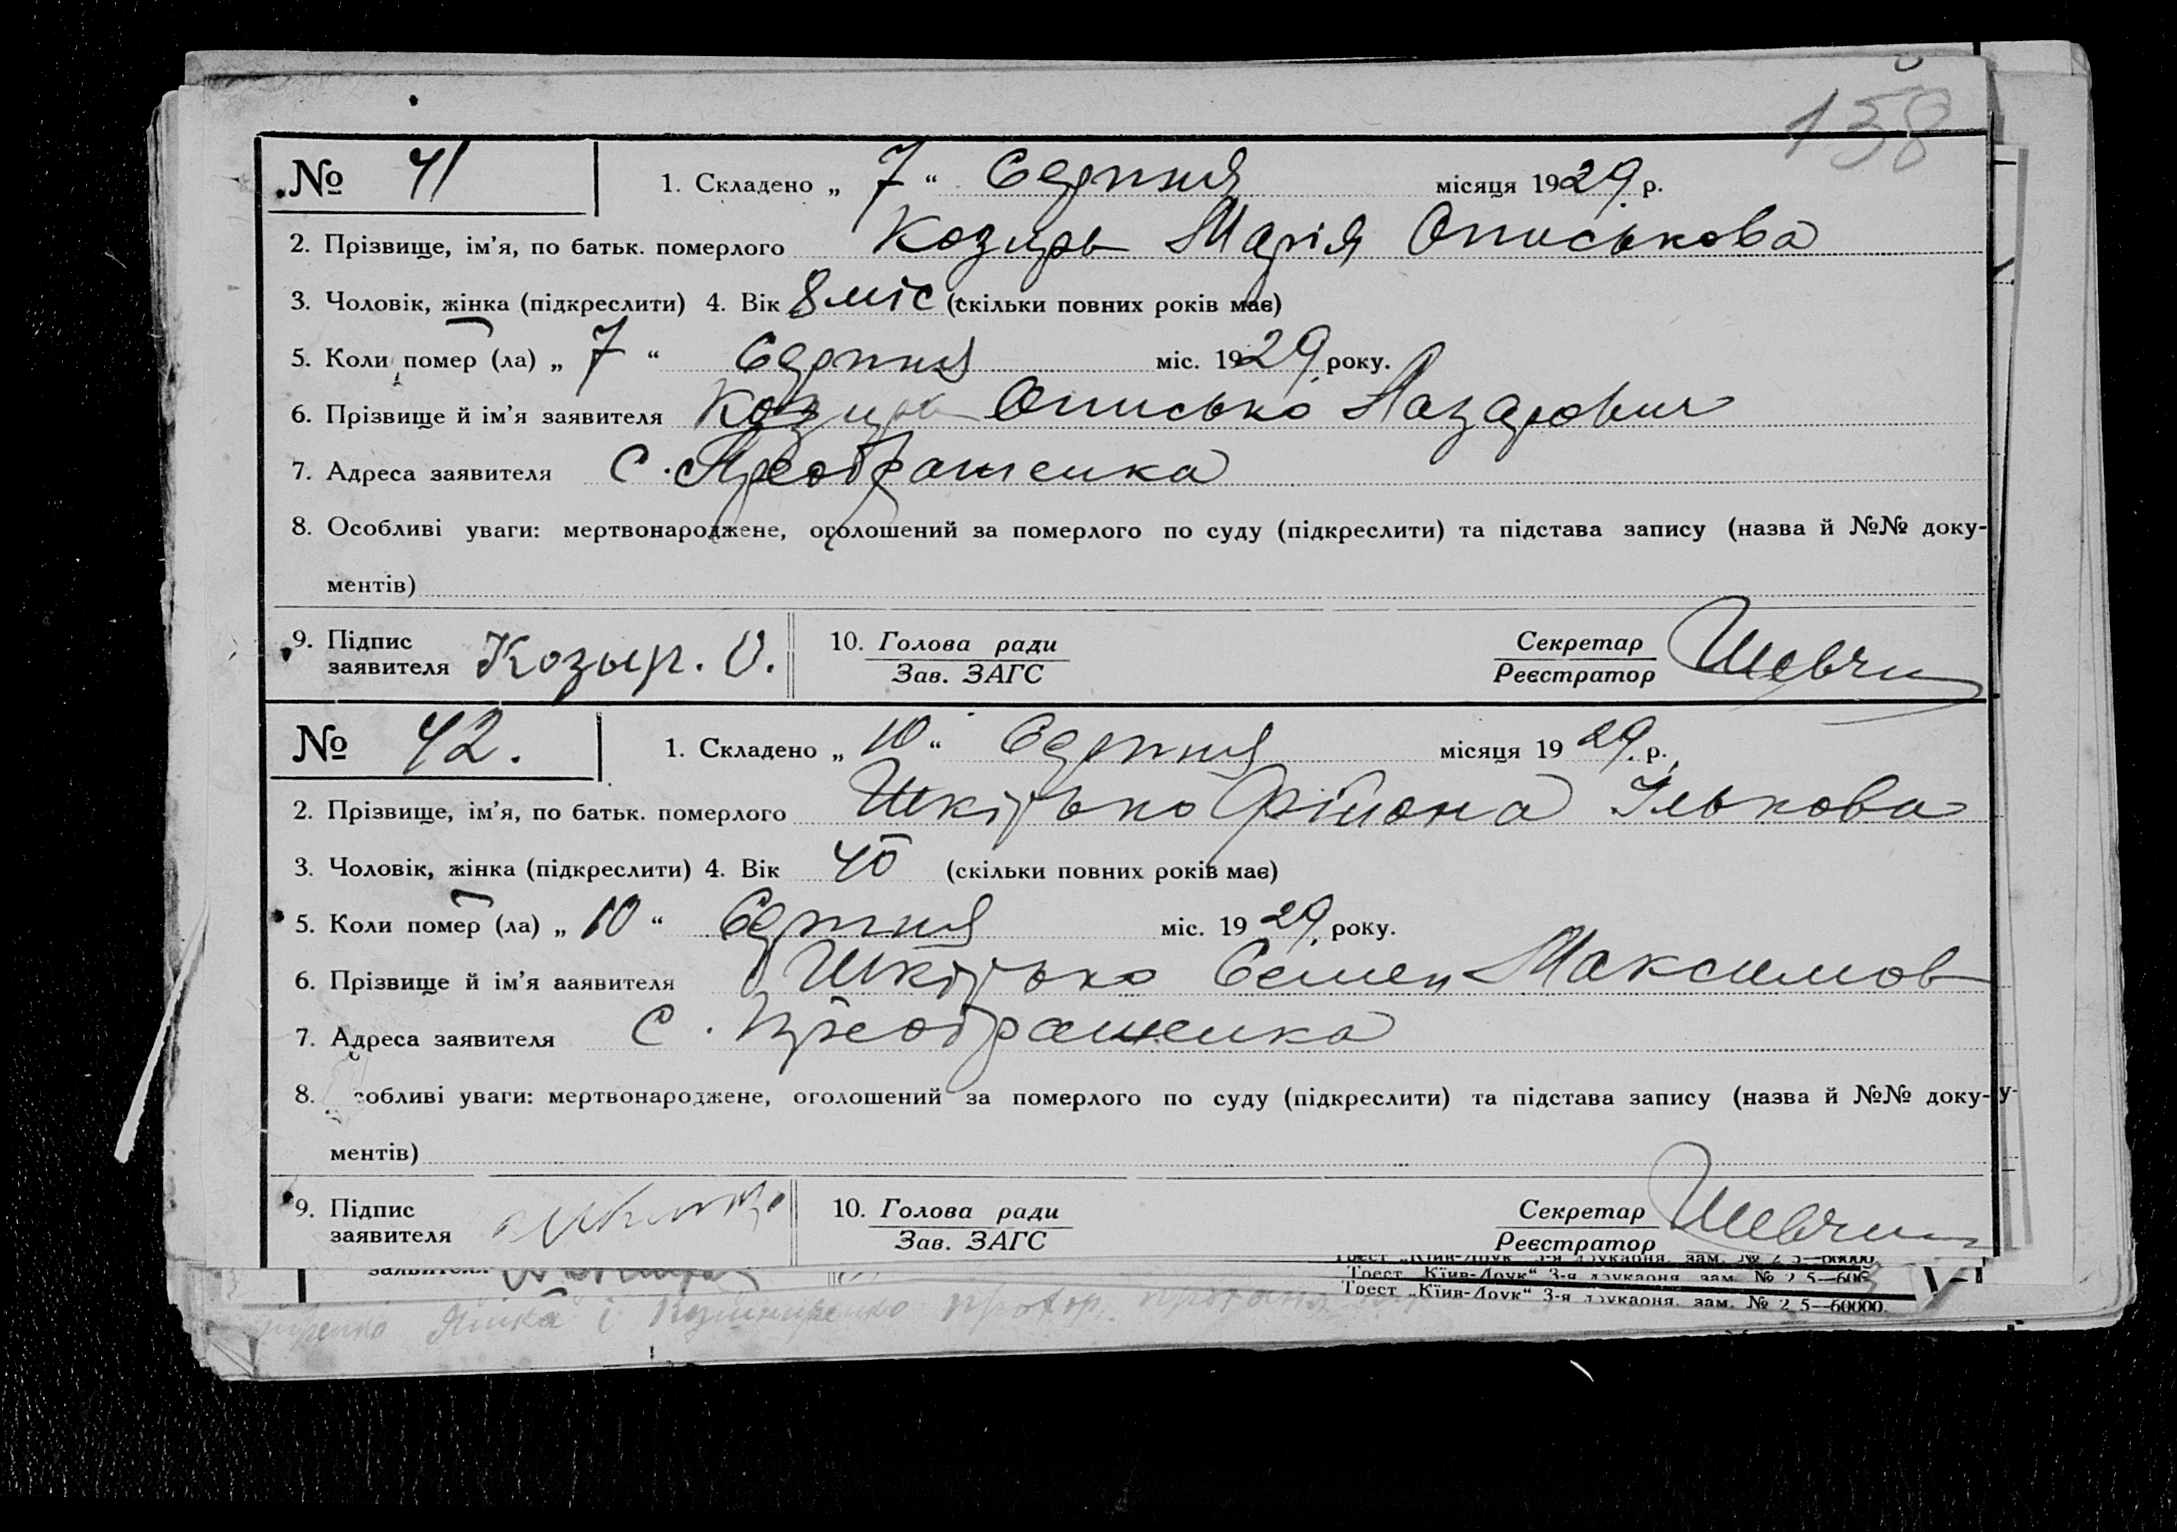 138
№ 41 1. Складено „ 7 “ Серпня місяця 1929 р.
2. Прізвище, ім’я, по батьк. померлого Козирь Марія Описькова
3. Чоловік, жінка (підкреслити) 4. Вік 8 міс (скільки повних років має)
5. Коли помер (ла) „ 7 “ Серпня міс. 1929 року.
6. Прізвище й ім’я заявителя КозирьОписько Назарович
7. Адреса заявителя С. Преображенка
8. Особливі уваги: мертвонароджене, оголошений за померлого по суду (підкреслити) та підстава запису (назва й №№ доку-
ментів)
9. Підпис заявителя Козыр. О. 10. Голова ради Зав. ЗАГС Секретар Реєстратор
№ 42. 1. Складено „ 10 “ Серпня місяця 1929 р.
2. Прізвище, ім’я, по батьк. померлого Ількова
3. Чоловік, жінка (підкреслити) 4. Вік 40 (скільки повних років має)
5. Коли помер (ла) „ 10 “ Серпня міс. 1929 року.
6. Прізвище й ім’я заявителя Семен Максимов
7. Адреса заявителя С. Преображенка
8. собливі уваги: мертвонароджене, оголошений за померлого по суду (підкреслити) та підстава запису (назва й №№ доку-
ментів)
9. Підпис заявителя 10. Голова ради Зав. ЗАГС Секретар Реєстратор
Трест „Київ-Друк“ 3-я друкарня, зам. № 2 5—60000.